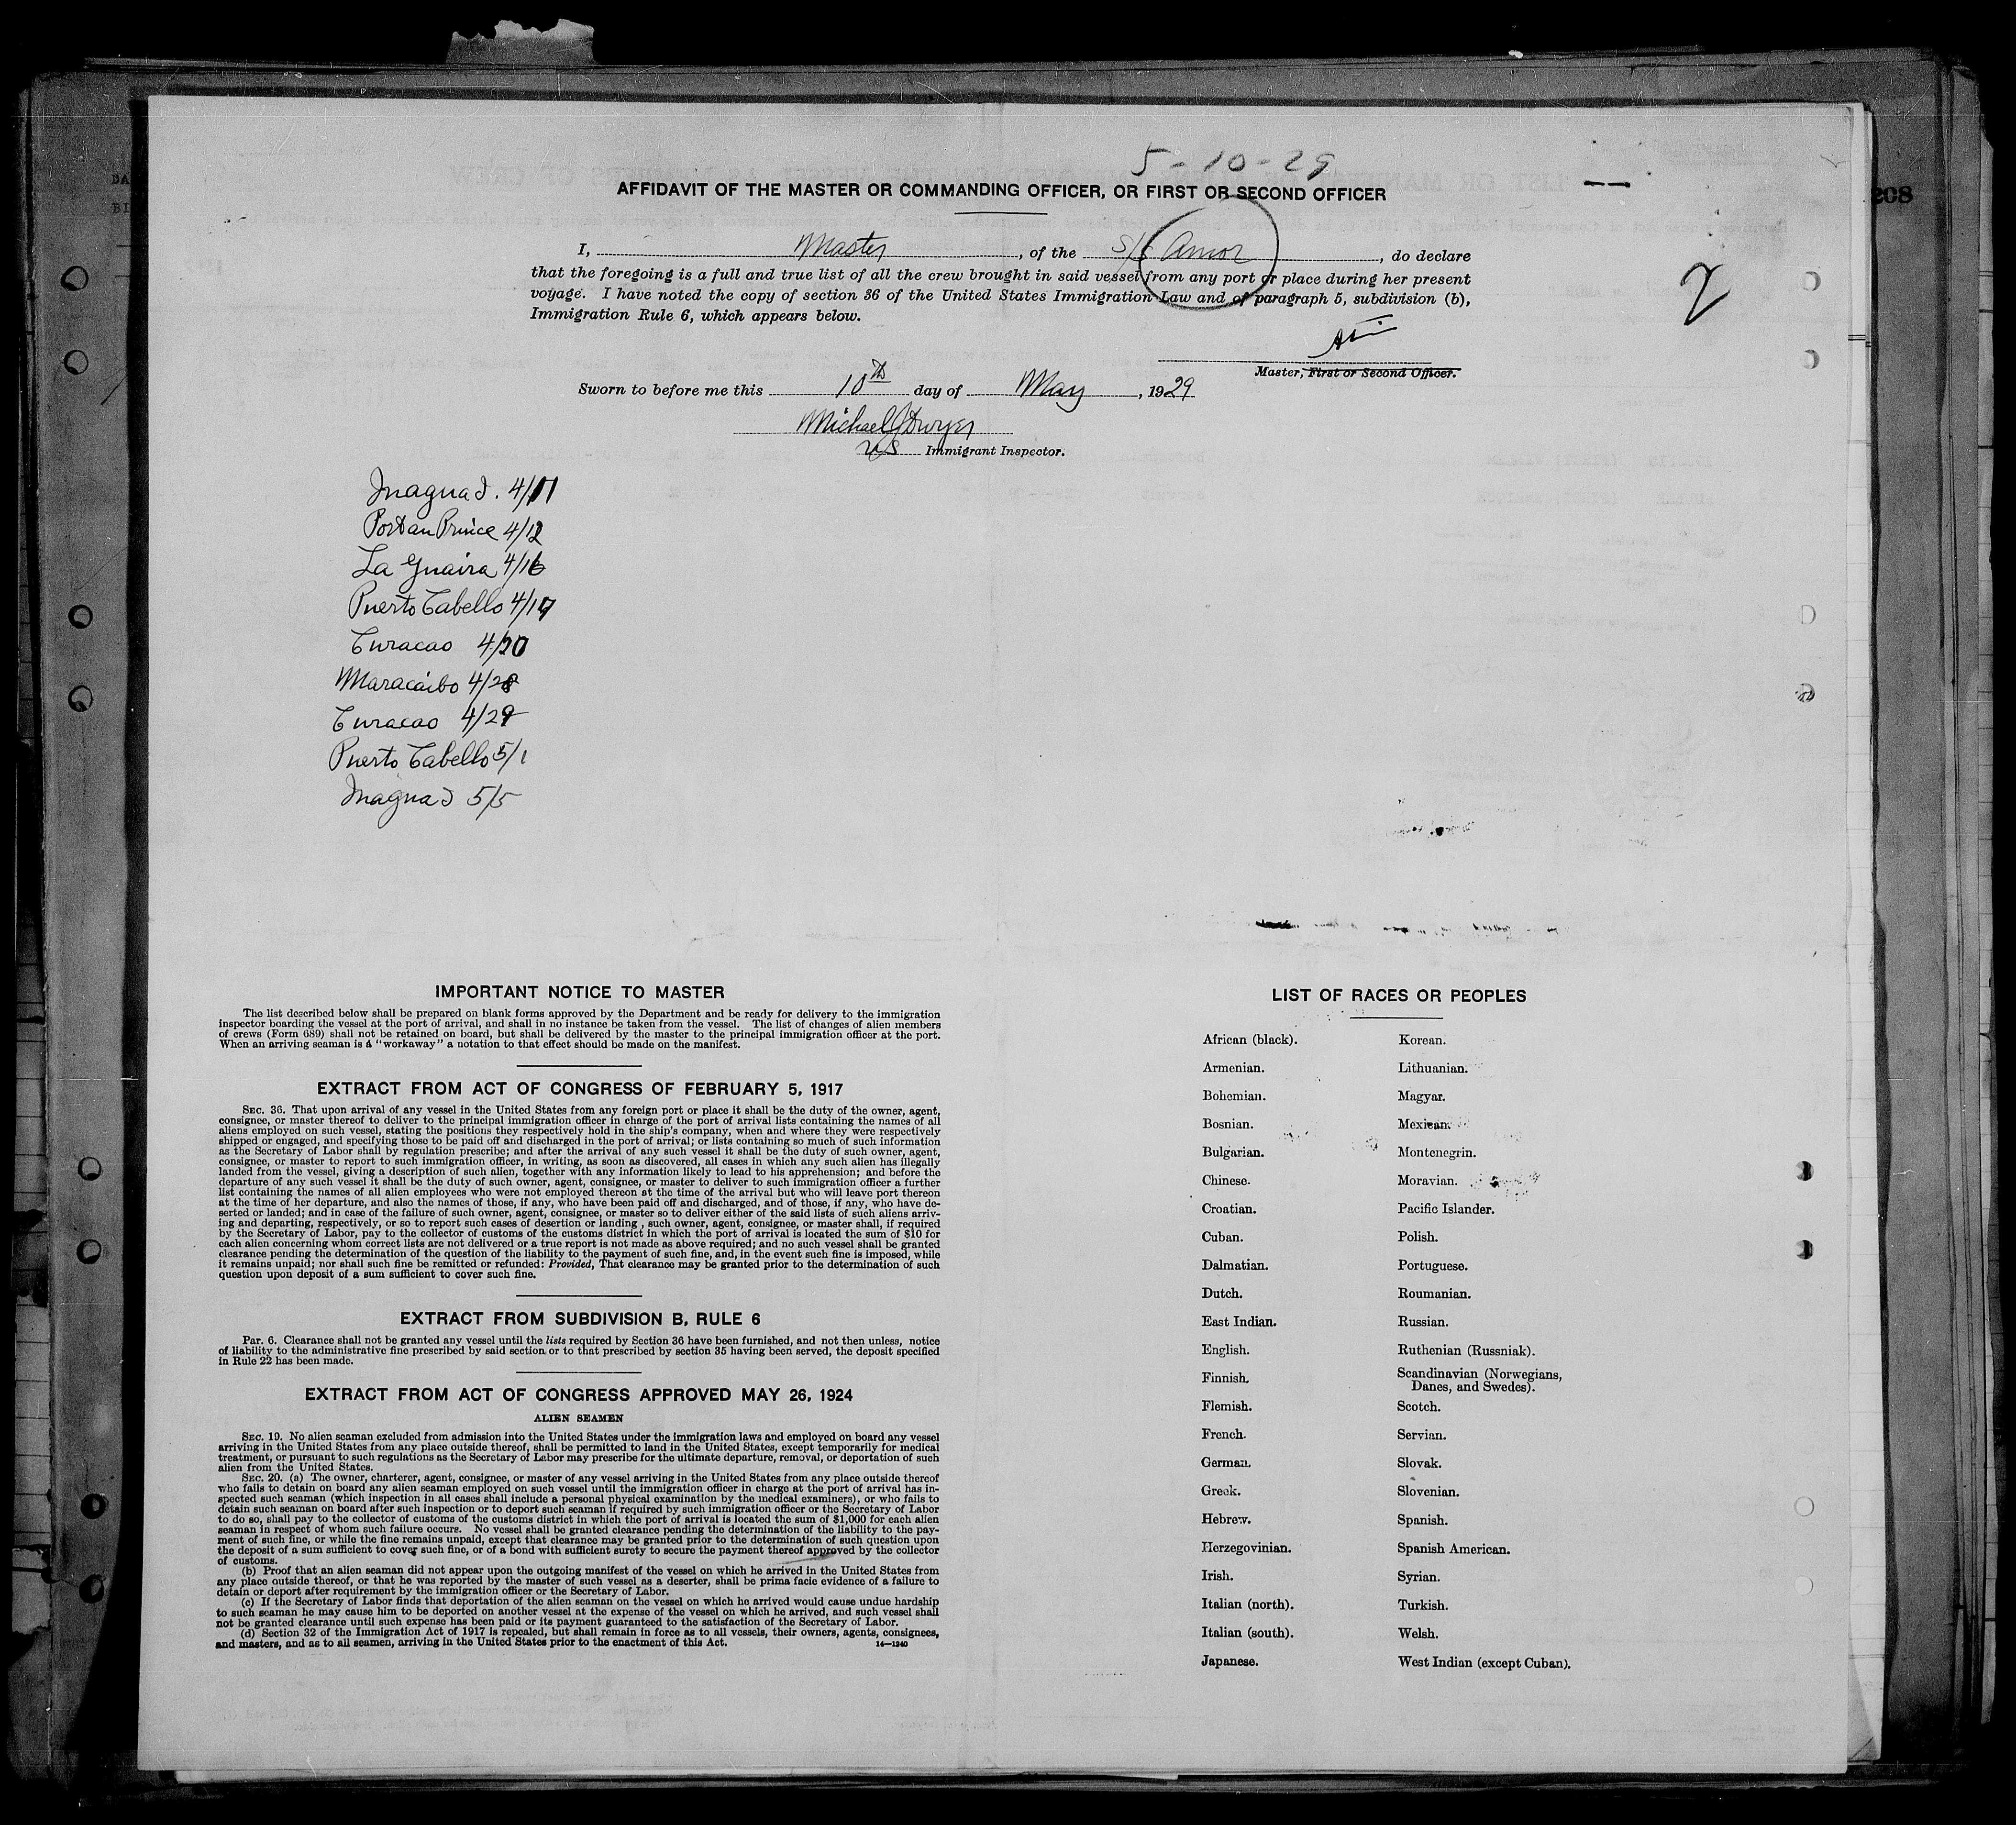 5-10-29
AFFIDAVIT OF THE MASTER OR COMMANDING OFFICER, OR FIRST OR SECOND OFFICER
208
I, Master, of the S/S Amor, do declare
that the foregoing is a full and true list of all the crew brought in said vessel from any port or place during her present
voyage. I have noted the copy of section 36 of the United States Immigration Law and of paragraph 5, subdivision (b),
Immigration Rule 6, which appears below.
2
Master, First or Second Officer.
Sworn to before me this 10th day of May, 1929
Michael J Dwyer
US Immigrant Inspector.
Inagua I. 4/11
Port au Prince 4/12
La Guaira 4/16
Puerto Cabello 4/17
Curacao 4/20
Maracaibo 4/28
Curacao 4/29
Puerto Cabello 5/1
Inagua I 5/5
IMPORTANT NOTICE TO MASTER
The list described below shall be prepared on blank forms approved by the Department and be ready for delivery to the immigration
inspector boarding the vessel at the port of arrival, and shall in no instance be taken from the vessel. The list of changes of alien members
of crews (Form 689) shall not be retained on board, but shall be delivered by the master to the principal immigration officer at the port.
When an arriving seaman is a "workaway" a notation to that effect should be made on the manifest.
EXTRACT FROM ACT OF CONGRESS OF FEBRUARY 5, 1917
SEC. 36. That upon arrival of any vessel in the United States from any foreign port or place it shall be the duty of the owner, agent,
consignee, or master thereof to deliver to the principal immigration officer in charge of the port of arrival lists containing the names of all
aliens employed on such vessel, stating the positions they respectively hold in the ship's company, when and where they were respectively
shipped or engaged, and specifying those to be paid off and discharged in the port of arrival; or lists containing so much of such information
as the Secretary of Labor shall by regulation prescribe; and after the arrival of any such vessel it shall be the duty of such owner, agent,
consignee, or master to report to such immigration officer, in writing, as soon as discovered, all cases in which any such alien has illegally
landed from the vessel, giving a description of such alien, together with any information likely to lead to his apprehension; and before the
departure of any such vessel it shall be the duty of such owner, agent, consignee, or master to deliver to such immigration officer a further
list containing the names of all alien employees who were not employed thereon at the time of the arrival but who will leave port thereon
at the time of her departure, and also the names of those, if any, who have been paid off and discharged, and of those, if any, who have de-
serted or landed; and in case of the failure of such owner, agent, consignee, or master so to deliver either of the said lists of such aliens arriv-
ing and departing, respectively, or so to report such cases of desertion or landing, such owner, agent, consignee, or master shall, if required
by the Secretary of Labor, pay to the collector of customs of the customs district in which the port of arrival is located the sum of $10 for
each alien concerning whom correct lists are not delivered or a true report is not made as above required; and no such vessel shall be granted
clearance pending the determination of the question of the liability to the payment of such fine, and, in the event such fine is imposed, while
it remains unpaid; nor shall such fine be remitted or refunded: Provided, That clearance may be granted prior to the determination of such
question upon deposit of a sum sufficient to cover such fine.
EXTRACT FROM SUBDIVISION B, RULE 6
Par. 6. Clearance shall not be granted any vessel until the lists required by Section 36 have been furnished, and not then unless, notice
of liability to the administrative fine prescribed by said section or to that prescribed by section 35 having been served, the deposit specified
in Rule 22 has been made.
EXTRACT FROM ACT OF CONGRESS APPROVED MAY 26, 1924
ALIEN SEAMEN
SEC. 19. No alien seaman excluded from admission into the United States under the immigration laws and employed on board any vessel
arriving in the United States from any place outside thereof, shall be permitted to land in the United States, except temporarily for medical
treatment, or pursuant to such regulations as the Secretary of Labor may prescribe for the ultimate departure, removal, or deportation of such
alien from the United States.
SEC. 20. (a) The owner, charterer, agent, consignee, or master of any vessel arriving in the United States from any place outside thereof
who fails to detain on board any alien seaman employed on such vessel until the immigration officer in charge at the port of arrival has in-
spected such seaman (which inspection in all cases shall include a personal physical examination by the medical examiners), or who fails to
detain such seaman on board after such inspection or to deport such seaman if required by such immigration officer or the Secretary of Labor
to do so, shall pay to the collector of customs of the customs district in which the port of arrival is located the sum of $1,000 for each alien
seaman in respect of whom such failure occurs. No vessel shall be granted clearance pending the determination of the liability to the pay-
ment of such fine, or while the fine remains unpaid, except that clearance may be granted prior to the determination of such question upon
the deposit of a sum sufficient to cover such fine, or of a bond with sufficient surety to secure the payment thereof approved by the collector
of customs.
(b) Proof that an alien seaman did not appear upon the outgoing manifest of the vessel on which he arrived in the United States from
any place outside thereof, or that he was reported by the master of such vessel as a deserter, shall be prima facie evidence of a failure to
detain or deport after requirement by the immigration officer or the Secretary of Labor.
(c) If the Secretary of Labor finds that deportation of the alien seaman on the vessel on which he arrived would cause undue hardship
to such seaman he may cause him to be deported on another vessel at the expense of the vessel on which he arrived, and such vessel shall
not be granted clearance until such expense has been paid or its payment guaranteed to the satisfaction of the Secretary of Labor.
(d) Section 32 of the Immigration Act of 1917 is repealed, but shall remain in force as to all vessels, their owners, agents, consignees,
and masters, and as to all seamen, arriving in the United States prior to the enactment of this Act.
14—1240
LIST OF RACES OR PEOPLES
African (black).
Armenian.
Bohemian.
Bosnian.
Bulgarian.
Chinese.
Croatian.
Cuban.
Dalmatian.
Dutch.
East Indian.
English.
Finnish.
Flemish.
French.
German.
Greek.
Hebrew.
Herzegovinian.
Irish.
Italian (north).
Italian (south).
Japanese.
Korean.
Lithuanian.
Magyar.
Mexican.
Montenegrin.
Moravian.
Pacific Islander.
Polish.
Portuguese.
Roumanian.
Russian.
Ruthenian (Russniak).
Scandinavian (Norwegians,
Danes, and Swedes).
Scotch.
Servian.
Slovak.
Slovenian.
Spanish.
Spanish American.
Syrian.
Turkish.
Welsh.
West Indian (except Cuban).